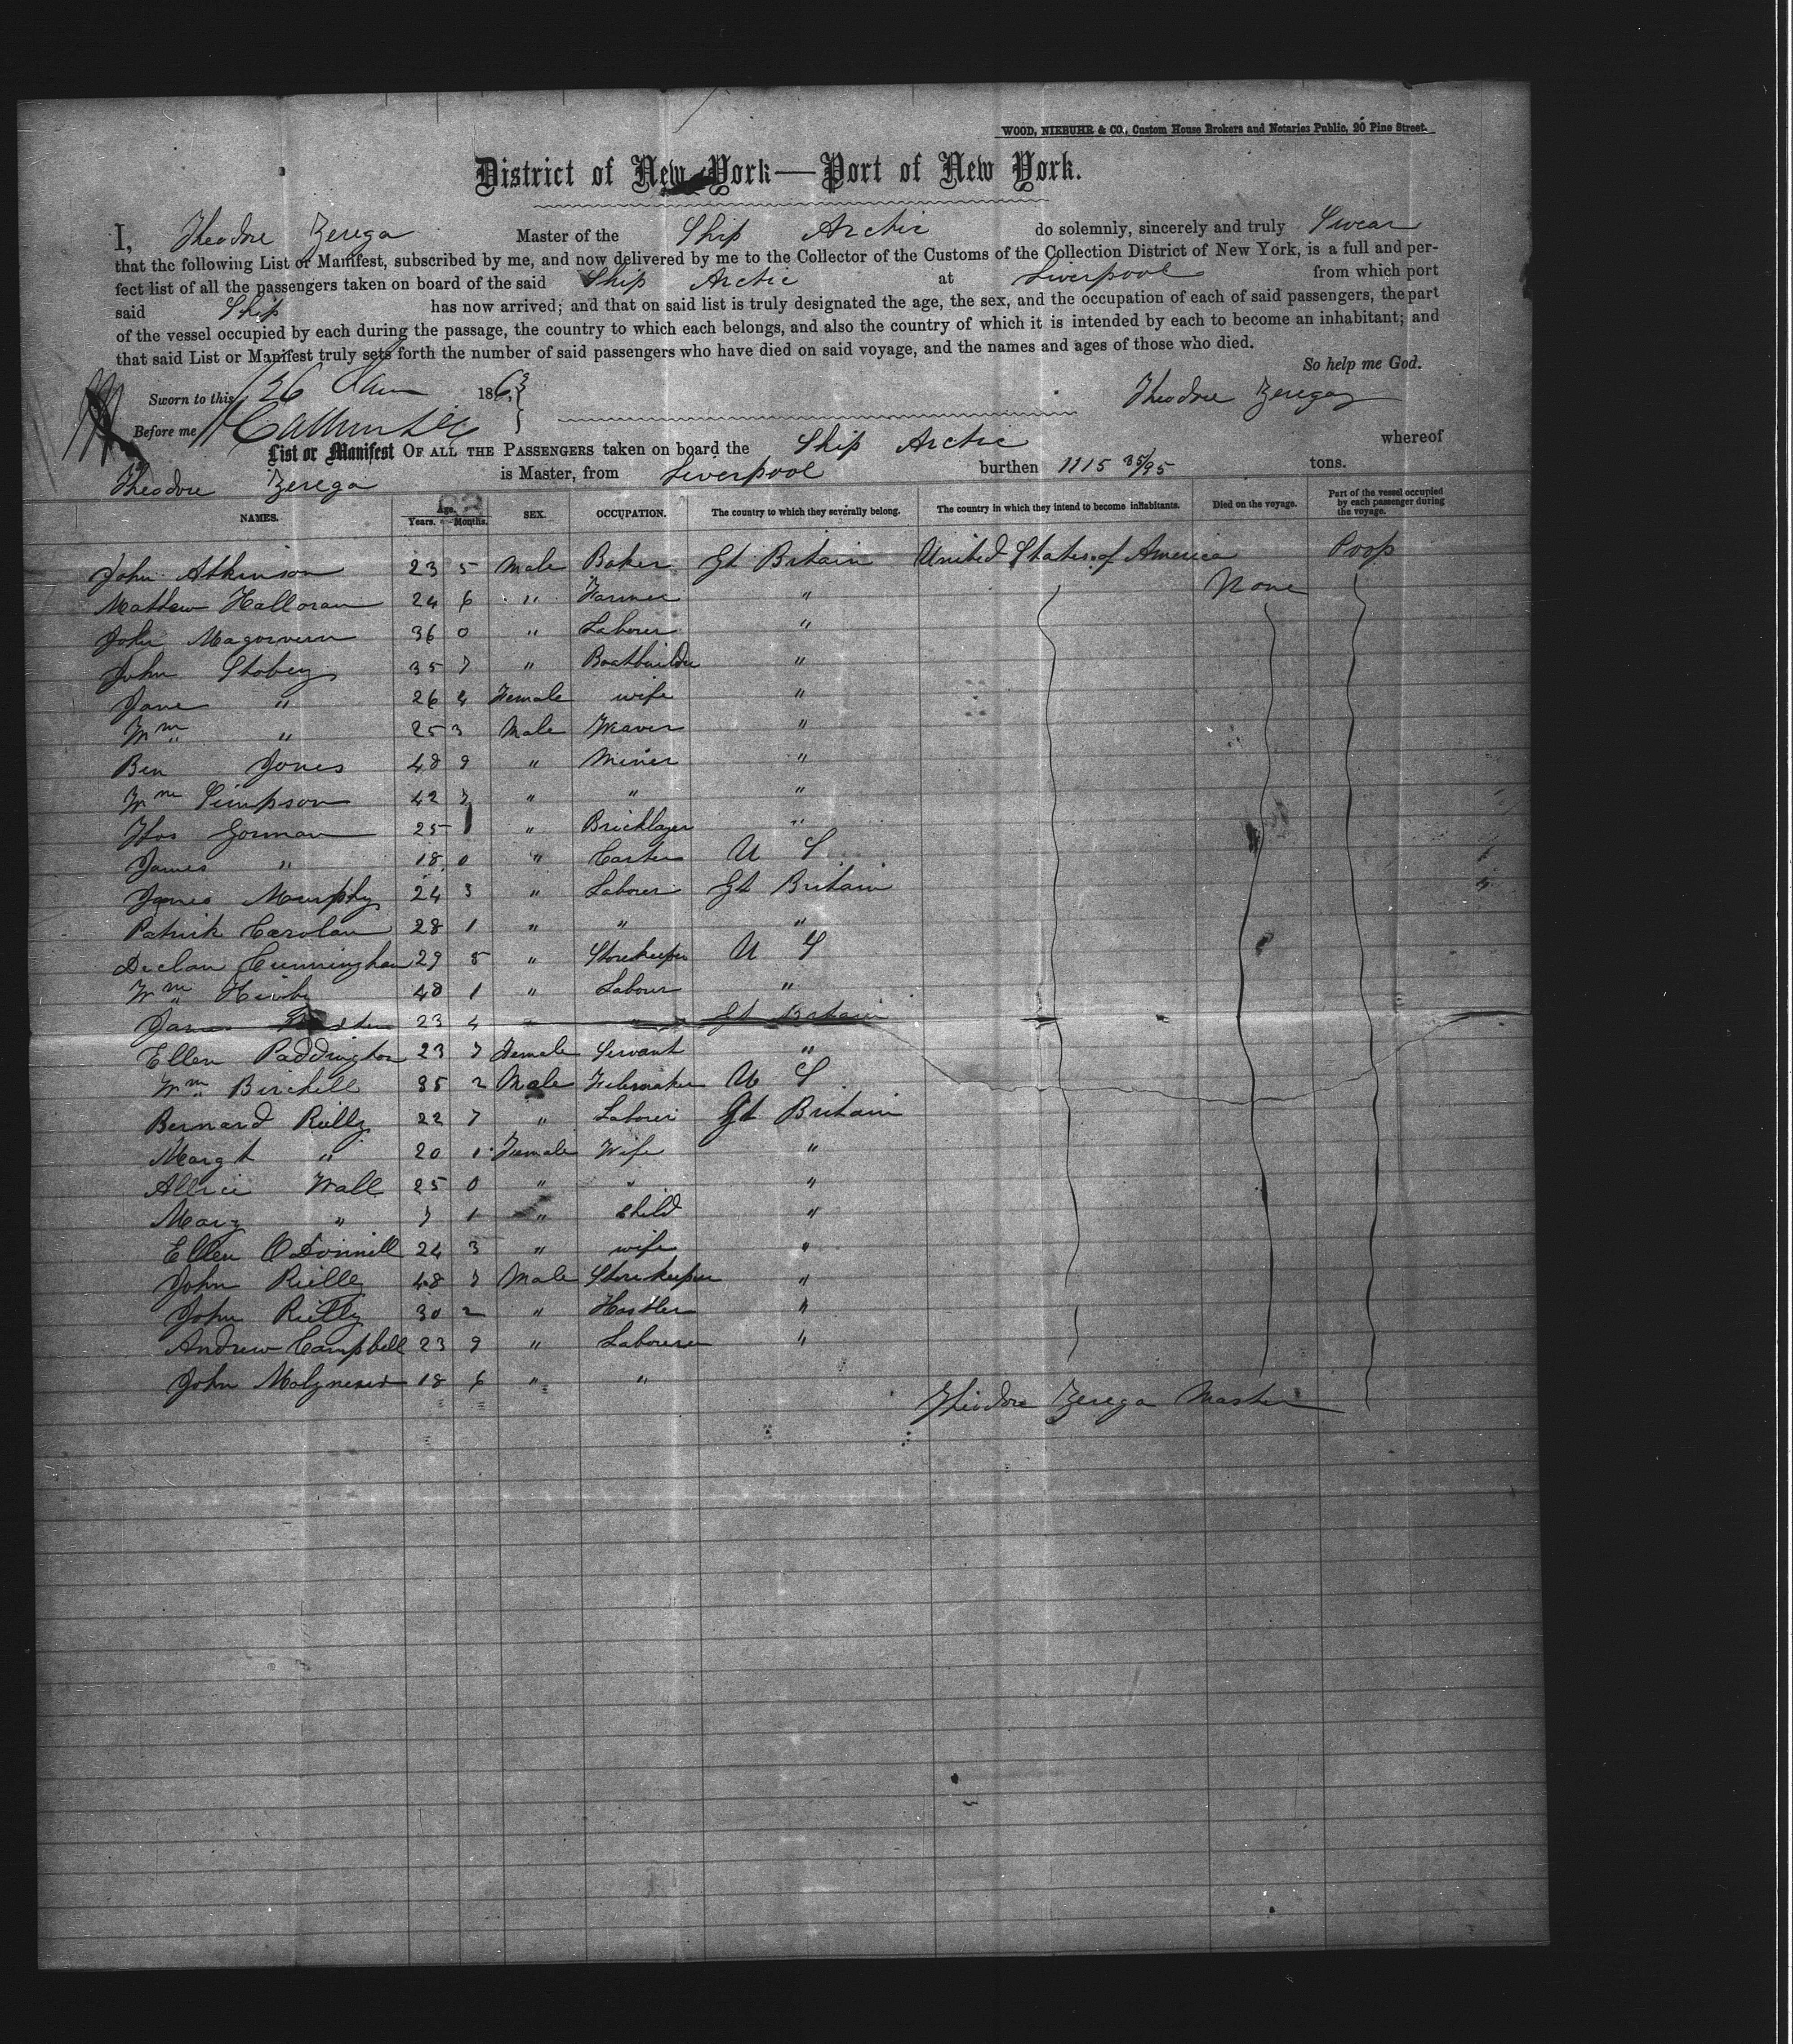 WOOD, NIEBUHR & CO., Custom House Brokers and Notaries Public, 20 Pine Street.
District of New York—Port of New York.
I, Theodore Zerega Master of the Ship Arctic do solemnly, sincerely and truly Swear
that the following List or Manifest, subscribed by me, and now delivered by me to the Collector of the Customs of the Collection District of New York, is a full and per-
fect list of all the passengers taken on board of the said Ship Arctic at Liverpool from which port
said Ship has now arrived; and that on said list is truly designated the age, the sex, and the occupation of each of said passengers, the part
of the vessel occupied by each during the passage, the country to which each belongs, and also the country of which it is intended by each to become an inhabitant; and
that said List or Manifest truly sets forth the number of said passengers who have died on said voyage, and the names and ages of those who died.
So help me God.
Sworn to this 26 1863 Theodore Zerega
Before me
List or Manifest OF ALL THE PASSENGERS taken on board the Ship Arctic whereof
Theodore Zerega is Master, from Liverpool burthen 1115 35/95 tons.
NAMES. Age. Years. Months. SEX. OCCUPATION. The country to which they severally belong. The country in which they intend to become inhabitants. Died on the voyage. Part of the vessel occupied by each passenger during the voyage.
John Atkinson 23 5 Male Baker Gt Britain United States of America Poop
Mathew Halloran 24 6 " Farmer " None
John Magorvern 36 0 " Laborer "
John Stobey 35 7 " Boatbuilder "
Jane " 26 4 Female wife "
Wm " 25 3 Male Weaver "
Ben Jones 48 9 " Miner "
Wm Simpson 42 7 " " "
Thos Gorman 25 1 " Bricklayer "
James " 18 0 " Carter U S
James Murphy 24 3 " Laborer Gt Britain
Patrick Carolan 28 1 " " "
Declan Cunningham 29 5 " Storekeeper U S
Wm Kirby 48 1 " Labour "
James 23 4 " " Gt Britain
Ellen Paddington 23 7 Female Servant "
Wm Birchell 35 2 Male U S
Bernard Rielly 22 7 " Laborer Gt Britain
Margt " 20 1 Female Wife "
Allice Wall 25 0 " " "
Mary " 7 1 " child "
Ellen O'Donnell 24 3 " wife "
John Rielly 48 7 Male Storekeeper "
John Rielly 30 2 " Hostler "
Andrew Campbell 23 9 " Labourer "
John Molyneux 18 6 " "
Theodore Zerega Master